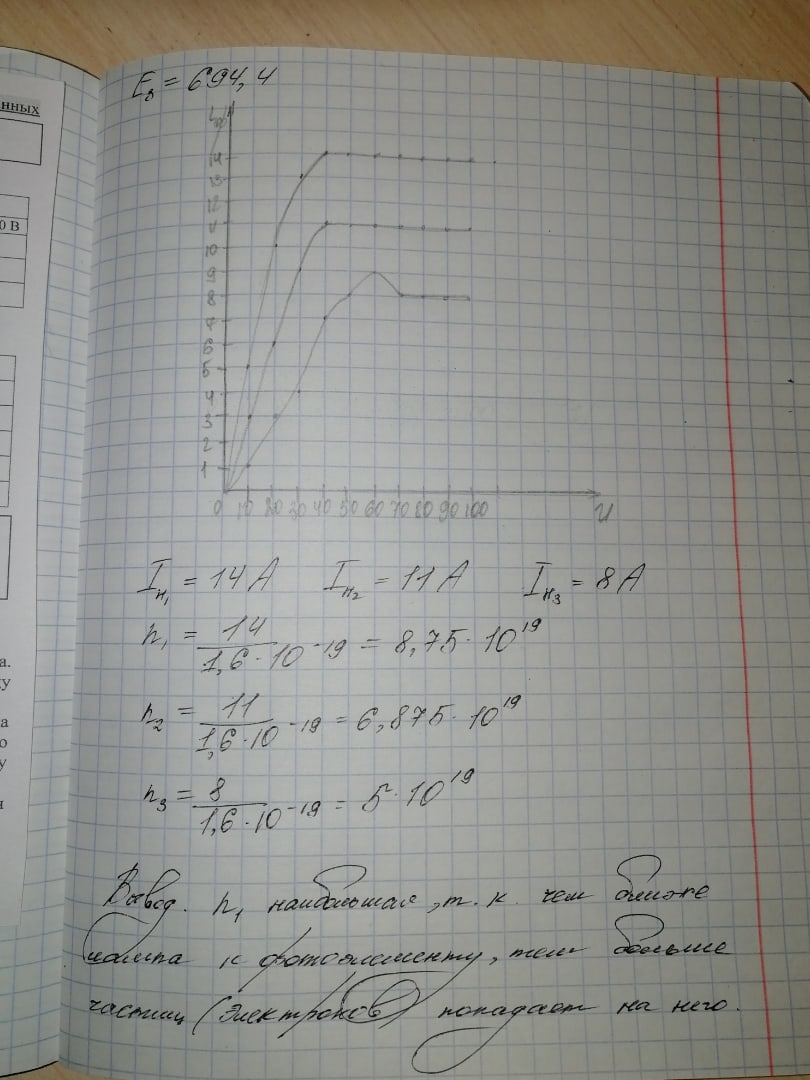 нных
0 В
E₈ = 694,4
14
13
12
11
10
9
8
7
6
5
4
3
2
1
0 10 20 30 40 50 60 70 80 90 100 U
Iн₁ = 14 А Iн₂ = 11 А Iн₃ = 8 А
n₁ = 14 / 1,6 · 10⁻¹⁹ = 8,75 · 10¹⁹
n₂ = 11 / 1,6 · 10⁻¹⁹ = 6,875 · 10¹⁹
n₃ = 8 / 1,6 · 10⁻¹⁹ = 5 · 10¹⁹
Вывод. n₁ наибольшая, т. к. чем ближе
лампа к фотоэлементу, тем больше
частиц (электронов) попадает на него.